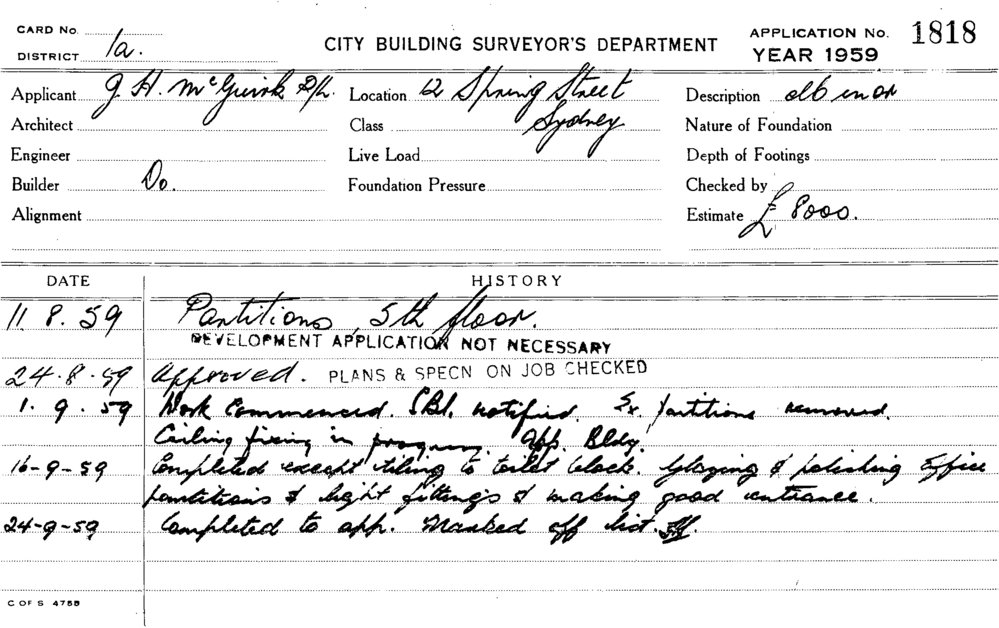 CARD No.
DISTRICT 1a.
CITY BUILDING SURVEYOR'S DEPARTMENT
APPLICATION No. 1818
YEAR 1959
Applicant J. H. McGuirk P/L. Location 12 Spring Street Description
Architect Class Sydney Nature of Foundation
Engineer Live Load Depth of Footings
Builder Do. Foundation Pressure Checked by
Alignment Estimate £ 8000.
DATE HISTORY
11. 8. 59 Partitions, 5th floor.
DEVELOPMENT APPLICATION NOT NECESSARY
24-8-59 Approved. PLANS & SPECN ON JOB CHECKED
1. 9. 59 Work Commenced. notified. Ex. partitions removed.
Ceiling fixing in progress. App. Bldg.
16-9-59 Completed except tiling to toilet block. Glazing & polishing Office
partitions & light fittings & making good entrance.
24-9-59 Completed to app. Marked off list.
C OF S 4758